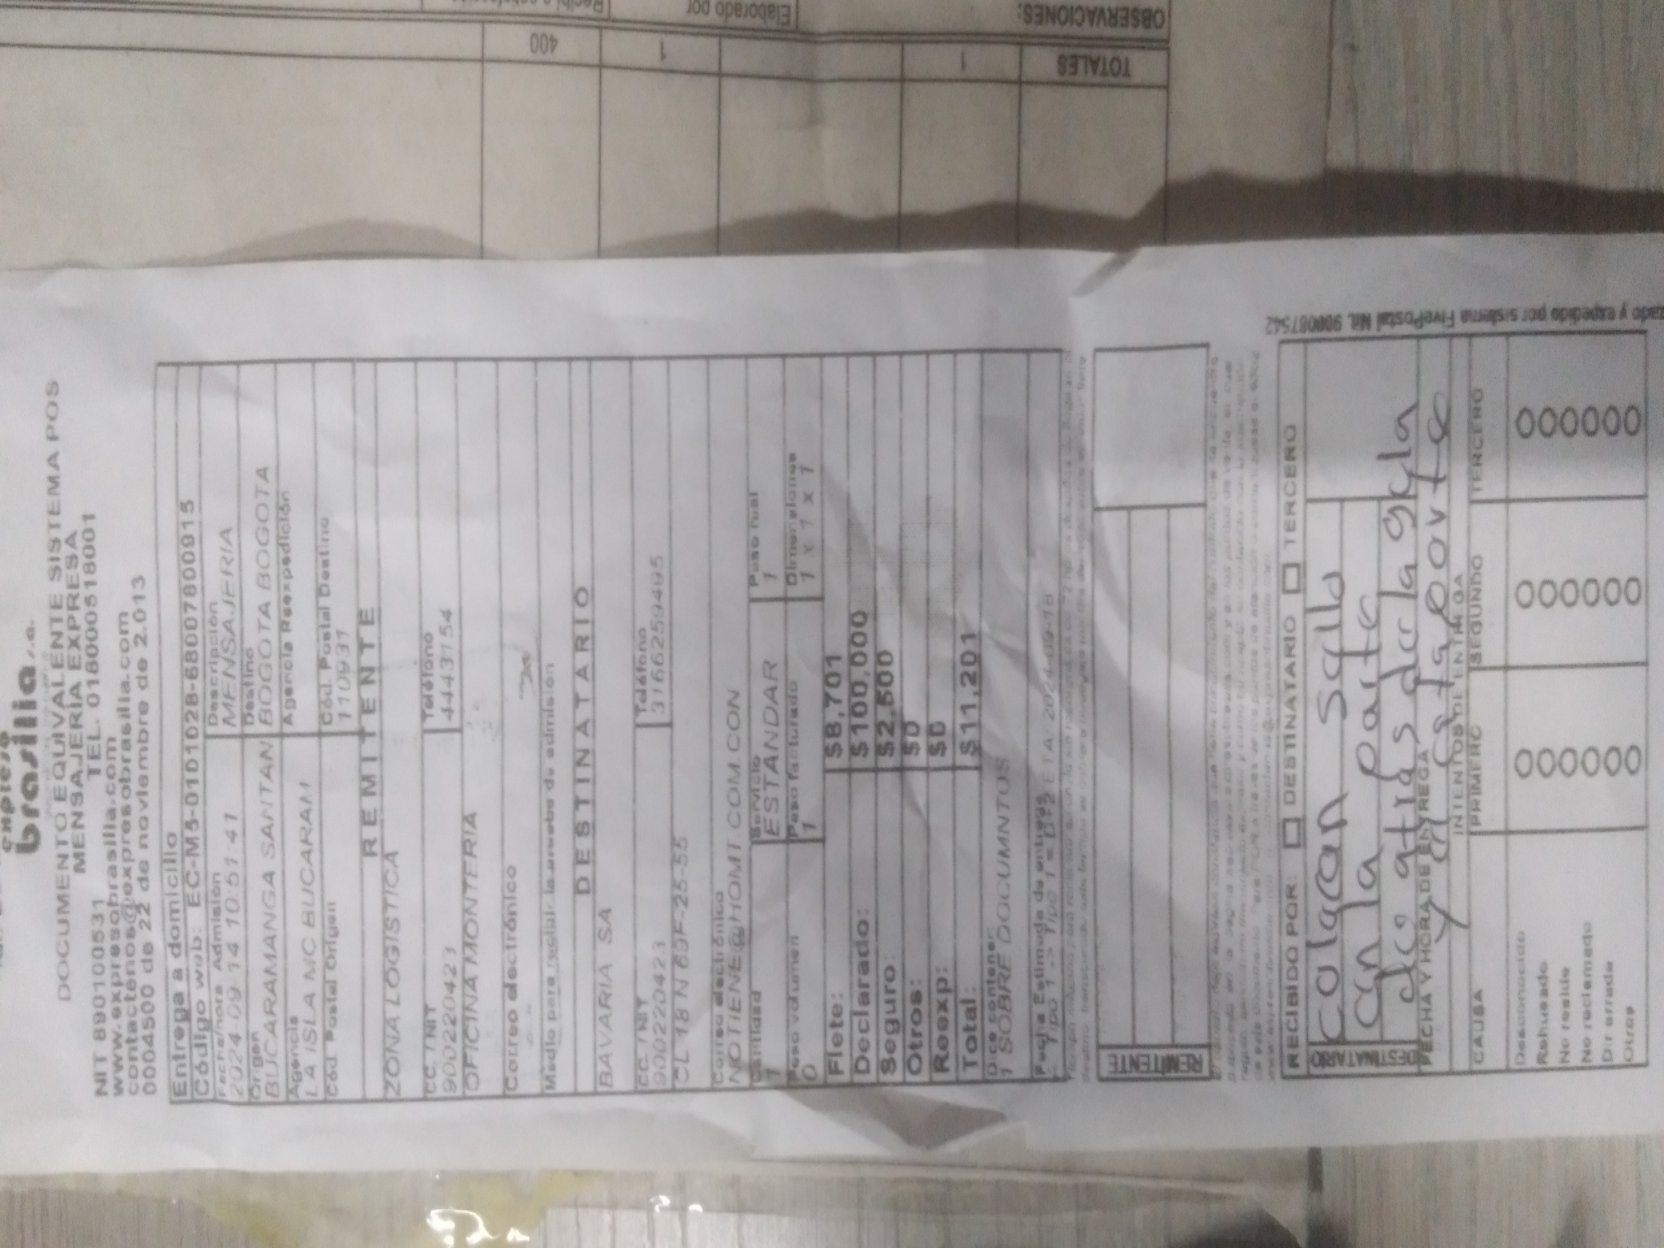 expreso
brasilia s.a.
DOCUMENTO EQUIVALENTE SISTEMA POS
MENSAJERIA EXPRESA
NIT 890100531 TEL. 018000518001
www.expresobrasilia.com
contactenos@expresobrasilia.com
004500 de 22 de noviembre de 2.013
Entrega a domicilio
Código web: EC-M5-0101028-68007800915
Fecha/hora Admisión Descripción
2024-09-14 10:51:41 MENSAJERIA
Origen Destino
BUCARAMANGA SANTAN BOGOTA BOGOTA
Agencia Agencia Reexpedición
LA ISLA MC BUCARAM
Cód. Postal Origen Cód. Postal Destino
110931
REMITENTE
ZONA LOGISTICA
CC / NIT Teléfono
900220423 4443154
OFICINA MONTERIA
Correo electrónico
Medio para recibir la prueba de admisión
DESTINATARIO
BAVARIA SA
CC / NIT Teléfono
900220423 3166259495
CL 18 N 69F-25-55
Correo electrónico
NOTIENE@HOMT.COM.CON
Cantidad Servicio Peso real
1 ESTANDAR 1
Peso volumen Peso facturado Dimensiones
0 1 1 x 1 x 1
Flete: $8,701
Declarado: $100,000
Seguro: $2,500
Otros: $0
Reexp: $0
Total: $11,201
Dice contener
1 SOBRE DOCUMNTOS
Fecha Estimada de entrega
REMITENTE
RECIBIDO POR: DESTINATARIO TERCERO
DESTINATARIO
colocan sello
en la parte
de atras de la guia
FECHA Y HORA DE ENTREGA
y en esta parte
INTENTOS DE ENTREGA
CAUSA PRIMERO SEGUNDO TERCERO
Desconocido
Rehusado
No reside
No reclamado
Dir errada
Otros
expedido por sistema FivePostal Nit. 900087542
TOTALES 1 1 400
OBSERVACIONES: Elaborado por